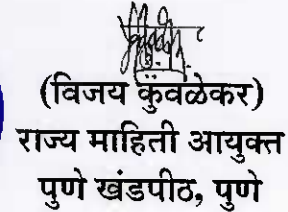 (विजय कुंवळेकर)
राज्य माहिती आयुक्त
पुणे खंडपीठ, पुणे